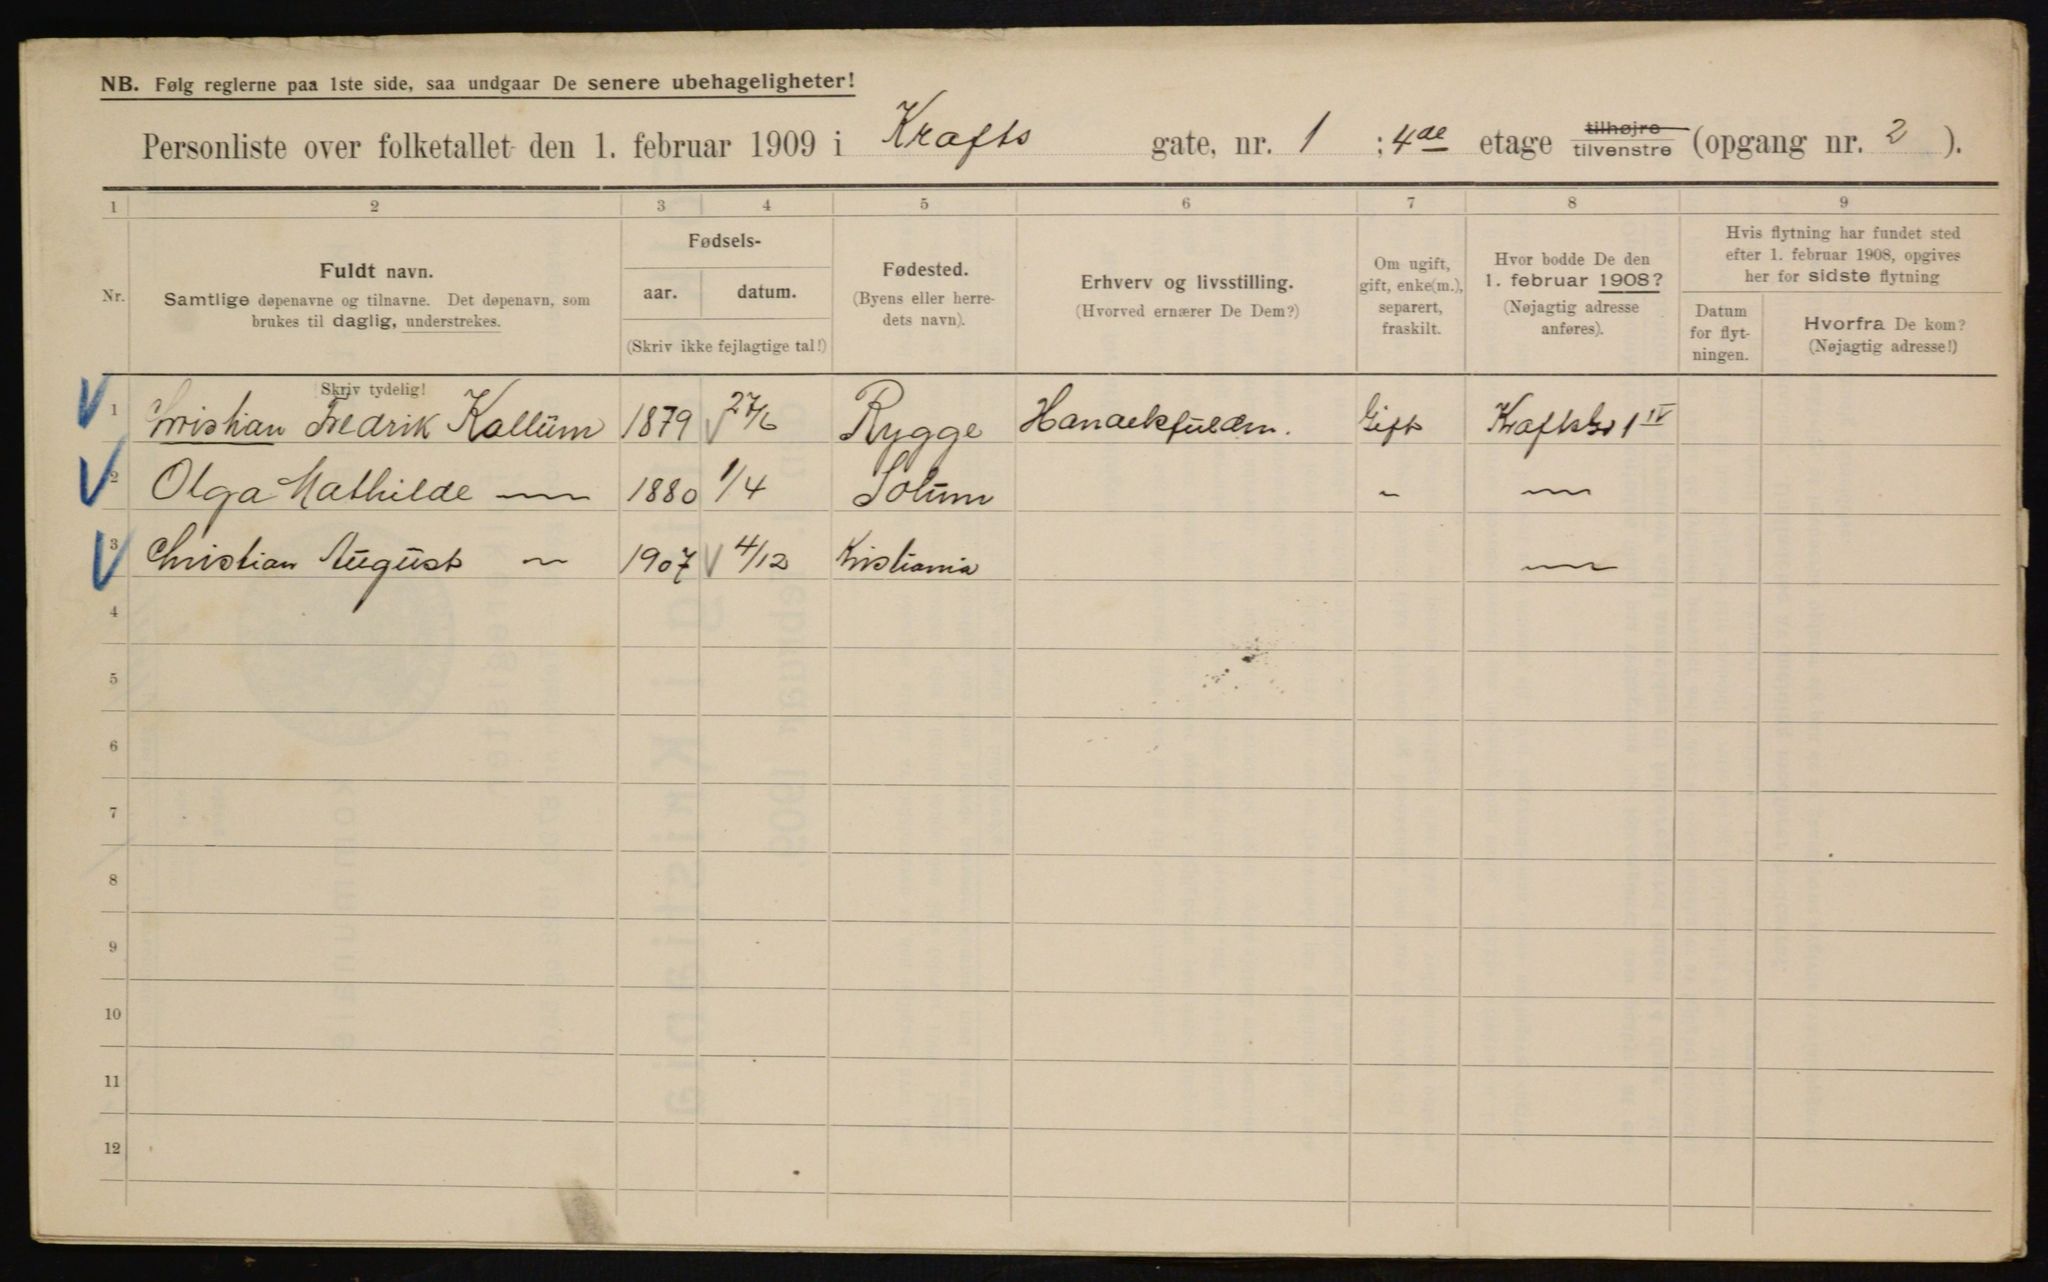 NB. Følg reglerne paa 1ste side, saa undgaar De senere ubehageligheter!
Personliste over folketallet den 1. februar 1909 i Krafts gate, nr. 1 ; 4de etage tilhøjre tilvenstre (opgang nr. 2 ).
1 2 3 4 5 6 7 8 9
Nr.
Fuldt navn.
Samtlige døpenavne og tilnavne. Det døpenavn, som
brukes til daglig, understrekes.
Skriv tydelig!
Fødsels-
aar. datum.
(Skriv ikke fejlagtige tal!)
Fødested.
(Byens eller herre-
dets navn).
Erhverv og livsstilling.
(Hvorved ernærer De Dem?)
Om ugift,
gift, enke(m.),
separert,
fraskilt.
Hvor bodde De den
1. februar 1908?
(Nøjagtig adresse
anføres).
Hvis flytning har fundet sted
efter 1. februar 1908, opgives
her for sidste flytning
Datum
for flyt-
ningen.
Hvorfra De kom?
(Nøjagtig adresse!)
1 Christian Fredrik Kallum 1879 27/6 Rygge Gift 1 IV
2 Olga Mathilde — 1880 1/4 Solum " —
3 Christian August — 1907 4/12 Kristiania —
4
5
6
7
8
9
10
11
12